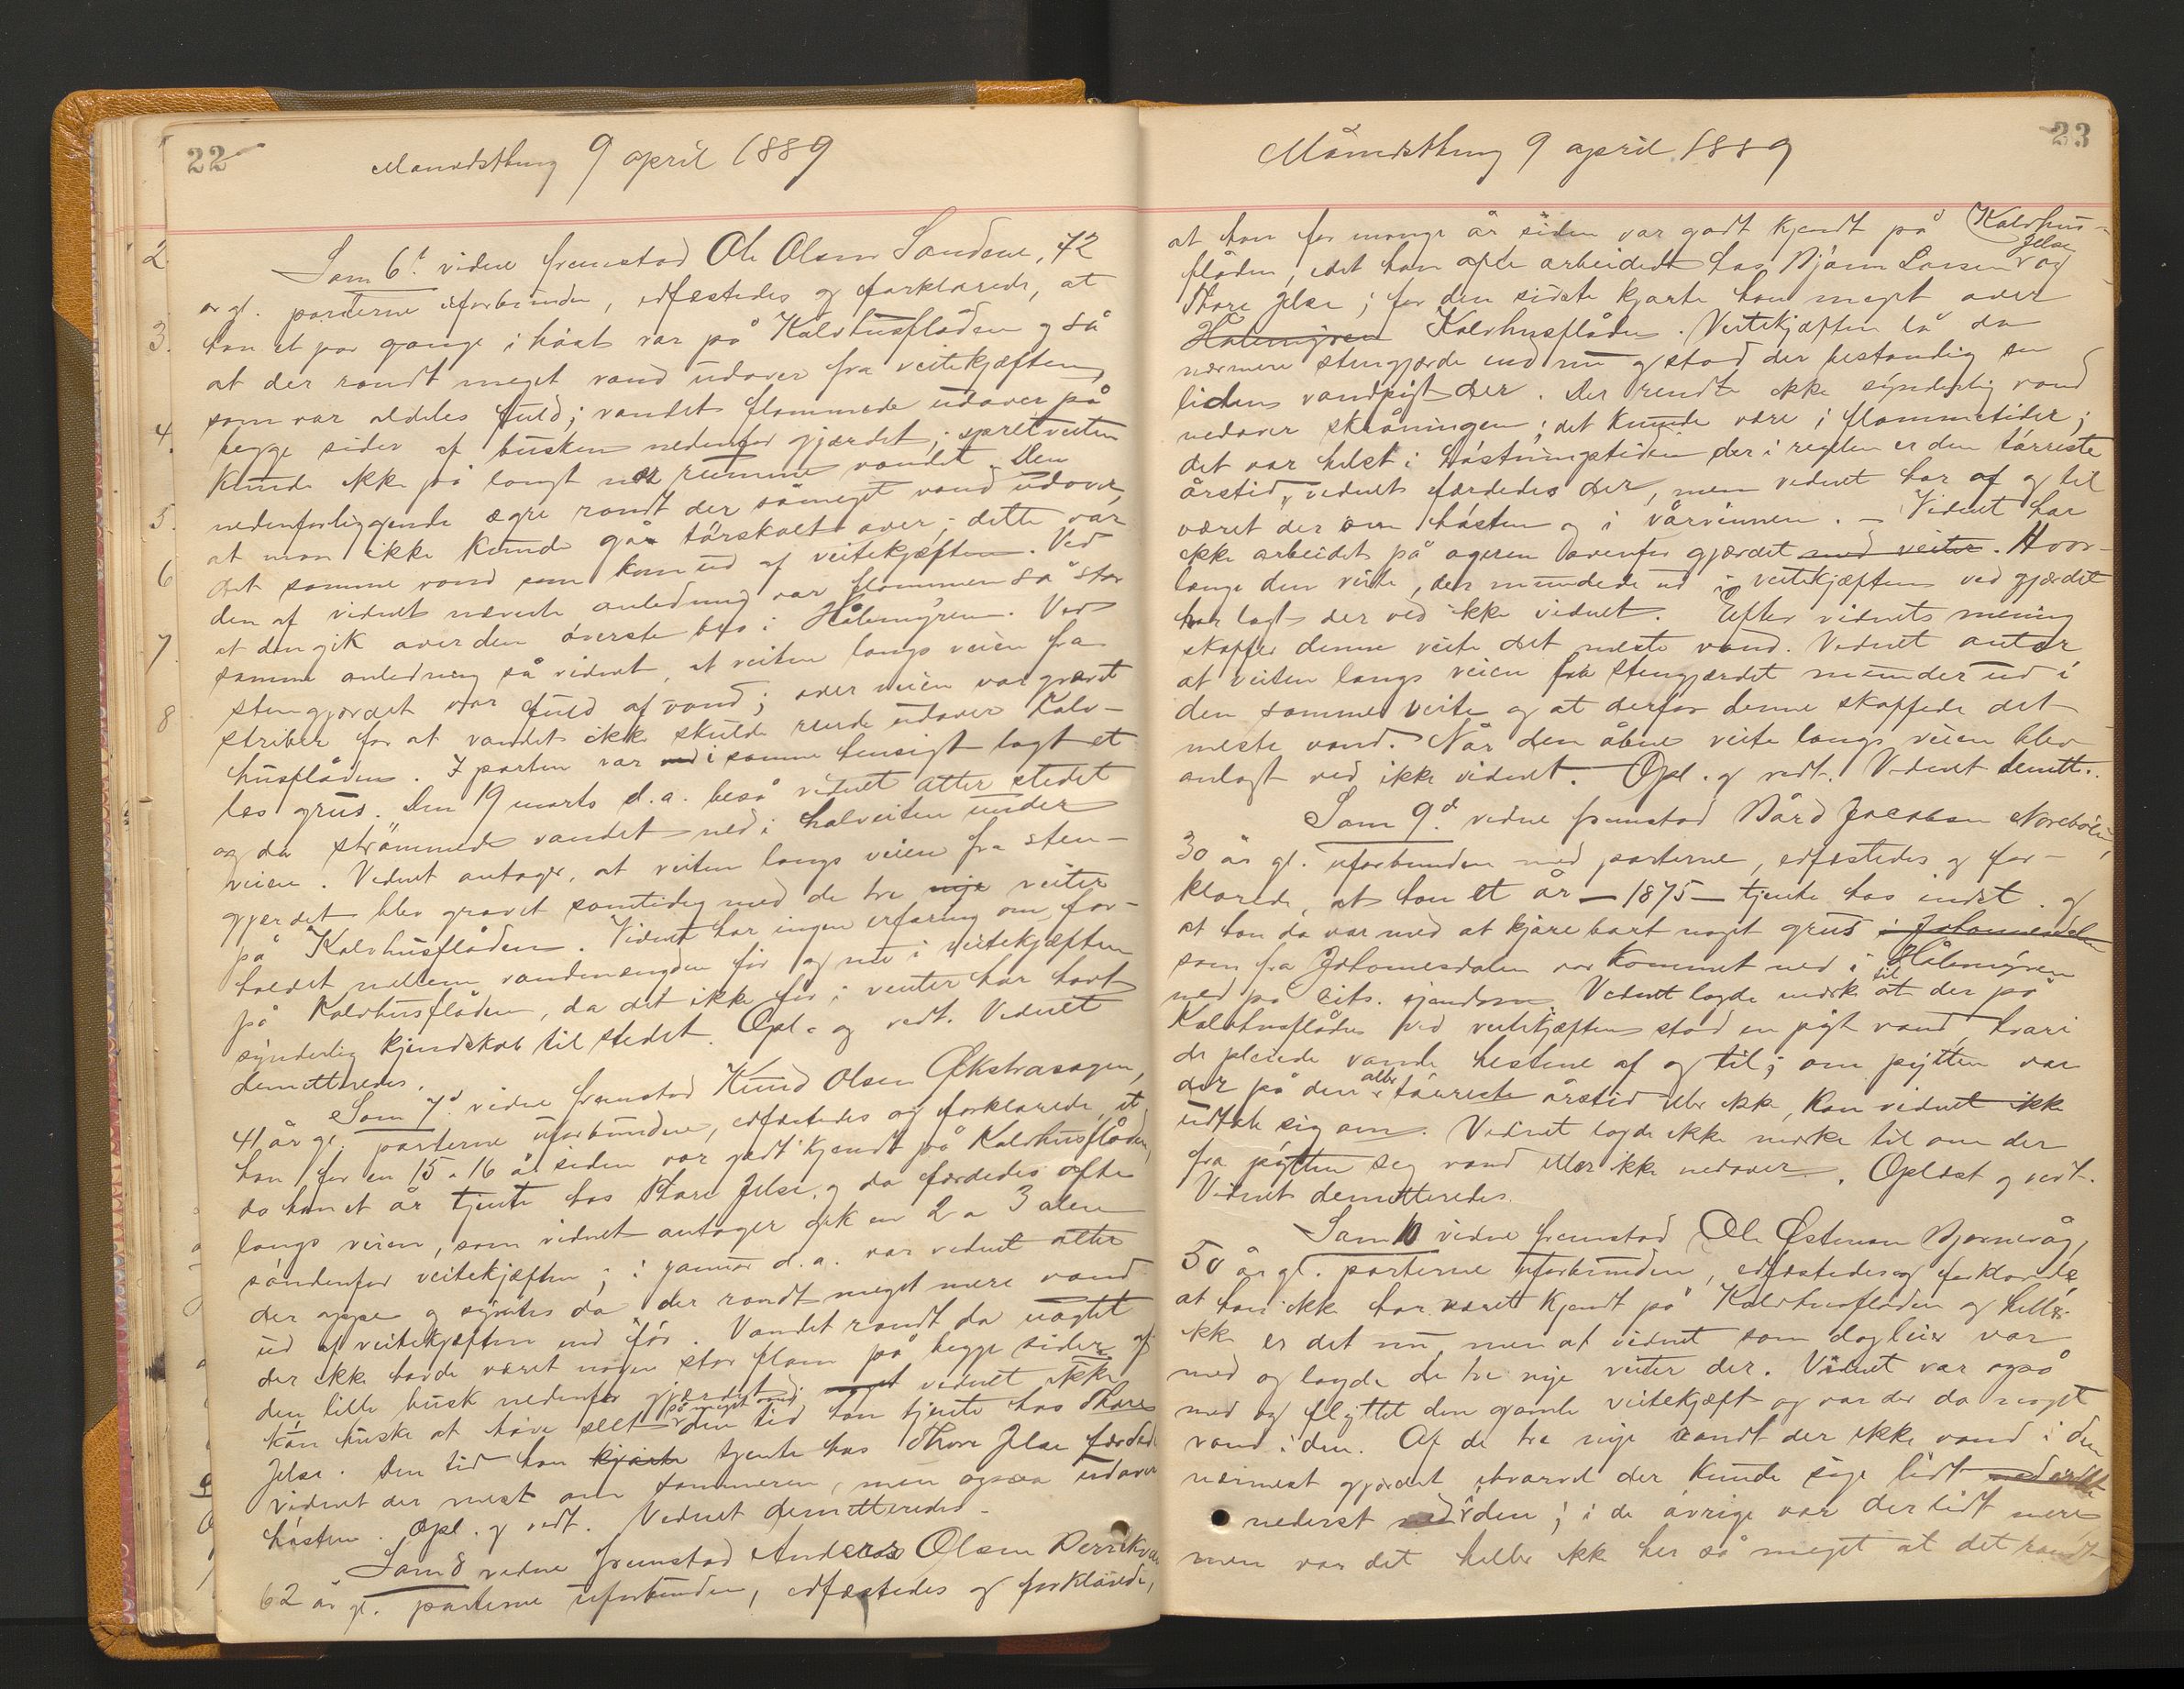 22
Manedsthing 9 april 1889
Som 6t vidne fremstod Ole Olsen Sandene, 42
år gl. parterne uforbunden, edfæstedes og forklarede, at
han et par gange i høst var på Kalvhusflåden og så
at der randt meget vand udover fra veitekjæften
som var aldeles fuld; vandet flommede udover på
begge sider af busken nedenfor gjærdet;
kunde ikke på langt nær rumme vandet. Den
nedenforliggende agre randt der såmeget vand udover,
at man ikke kunde gå tørskoet over; dette var
det samme vand som kom ud af veitekjæften. Ved
den af vidnet nævnte anledning var flommen så stor
at den gik over den øverste bro i Hålemyren. Ved
samme anledning så vidnet, at veiten langs veien fra
stengjærdet var fuld af vand; over veien var gravet
striber for at vandet ikke skulde rende udover Kalv-
husflåden. I porten var i samme hensigt lagt et
læs grus. Den 19 marts d.a. beså vidnet atter stedet
og da strømmede vandet ned i halveiten under
veien. Vidnet antager, at veiten langs veien fra sten-
gjærdet blev gravet samtidig med de tre nye veiter
på Kalvhusflåden. Vidnet har ingen erfaring om for-
holdet mellem vandmængden før og nu i veitekjæften
på Kalvhusflåden, da det ikke før i vinter har havt
synderlig kjendskab til stedet. Opl. og vedt. Vidnet
demitteredes.
Som 7d vidne fremstod Knud Olsen Økstrasagen,
41 år gl. parterne uforbunden, edfæstedes og forklarede, at
han for en 15 a 16 år siden var godt kjendt på Kalvhusflåden,
da han et år tjente hos Thore Jelse og da færdedes ofte
langs veien, som vidnet antager gik en 2 a 3 alen
søndenfor veitekjæften; i januar d.a. var vidnet atter
der oppe og syntes da der randt meget mere vand
ud af veitekjæften end før. Vandet randt da uagtet
der ikke havde været nogen stor flom på begge sider af
den lille busk nedenfor gjærdet; noget vidnet ikke
kan huske at have seet på meget nær den tid han tjente hos Thore
Jelse. Den tid han kjørte tjente hos Thore Jelse færdedes
vidnet der mest om sommeren, men ogsaa udover
høsten. Opl. og vedt. Vidnet demitteredes.
Som 8 vidne fremstod Anders Olsen
62 år gl. parterne uforbunden, edfæstedes og forklarede,
2
3.
4.
5.
6
7
8
23
Månedsthing 9 april 1889
at han for mange år siden var godt kjendt på Kalvhus-
flåden, idet han ofte arbeidede hos Bjørn Larsen Jelse og
Thore Jelse; for den sidste kjørte han meget over
Hålemyren Kalvhusflåden. Veitekjæften lå da
nærmere stengjærde end nu og stod der bestandig en
liden vandpyt der. Der rendte ikke synderlig vand
nedover skråningen; det kunde være i flommetider;
det var helst i høstningstiden der i reglen er den tørreste
årstid, vidnet færdedes der, men vidnet har af og til
været der om høsten og i vårvinnen. – Vidnet har
ikke arbeidet på ageren ovenfor gjærdet med veiter. Hvor-
længe den veite, der mundede ud i veitekjæften ved gjærdet
har lagt der ved ikke vidnet. Efter vidnets mening
skaffer denne veite det meste vand. Vidnet antar
at veiten langs veien fra stengjærdet munder ud i
den samme veite og at derfor denne skaffede det
meste vand. Når den åbne veite langs veien blev
anlagt ved ikke vidnet. Opl. og vedt. Vidnet demitt.
Som 9d vidne fremstod Bård Jacobsen Norebøen,
30 år gl. uforbunden med parterne, edfæstedes og for-
klarede, at han et år – 1875 – tjente hos indst. og
at han da var med at kjøre bort noget grus i Johannesdalen
som fra Johannesdalen var kommet ned i Hålemyren
ned på cits. eiendom. Vidnet lagde mærke til at der på
Kalvhusflåden ved veitekjæften stod en pyt vand, hvori
de pleiede vande hestene af og til; om pytten var
der på den aller tørreste årstid eller ikke, kan vidnet ikke
udtale sig om. Vidnet lagde ikke mærke til om der
fra pytten seg vand eller ikke nedover. Oplæst og vedt.
Vidnet demitteredes.
Som 10 vidne fremstod Ole Østensen Bjørnevåg,
50 år gl. parterne uforbunden, edfæstedes og forklarede
at han ikke har været kjendt på Kalvhusflåden og heller
ikke er det nu, men at vidnet som dagleier var
med og lagde de tre nye veiter der. Vidnet var også
med og flyttet den gamle veitekjæft og var der da noget
vand i den. Af de tre nye randt der ikke vand i den
nærmest gjærdet, hvorvel der kunde sige lidt
nederst i den; i de øvrige var der lidt mere
men var det heller ikke her så meget at det randt